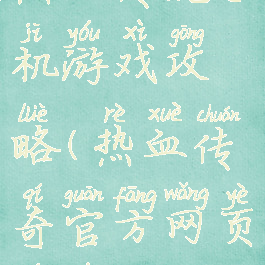 jī yóu xì gōng
机游戏攻
lüè rè xuè chuán
略(热血传
qí guān fāng wǎng yè
奇官方网页